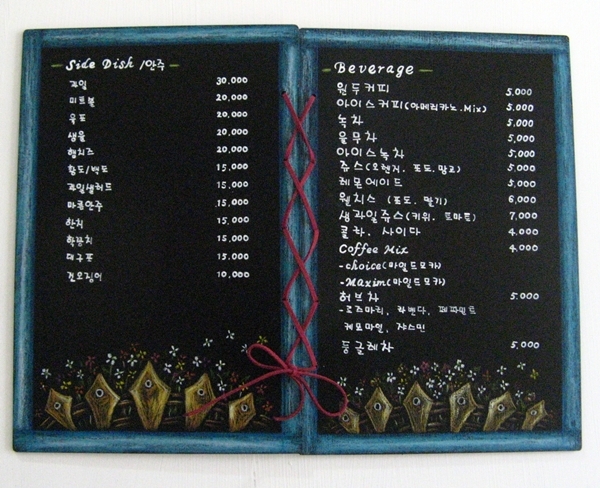 Side Dish /안주
과일 30,000
미트볼 20,000
육포 20,000
쌈율 20,000
햄치즈 20,000
황도/백도 15,000
과일샐러드 15,000
마른안주 15,000
한치 15,000
학꽁치 15,000
대구포 15,000
건오징어 10,000
Beverage
원두커피 5,000
아이스커피(아메리카노.Mix) 5,000
녹차 5,000
율무차 5,000
아이스녹차 5,000
쥬스(오렌지, 포도, 망고) 5,000
레몬에이드 5,000
웰치스 (포도, 딸기) 6,000
생과일쥬스(키위, 토마토) 7,000
콜라, 사이다 4,000
Coffee Mix 4,000
-choice(마일드모카)
-Maxim(마일드모카)
허브차 5,000
-로즈마리, 라벤다, 페파민트
케모마일, 쟈스민
둥글레차 5,000